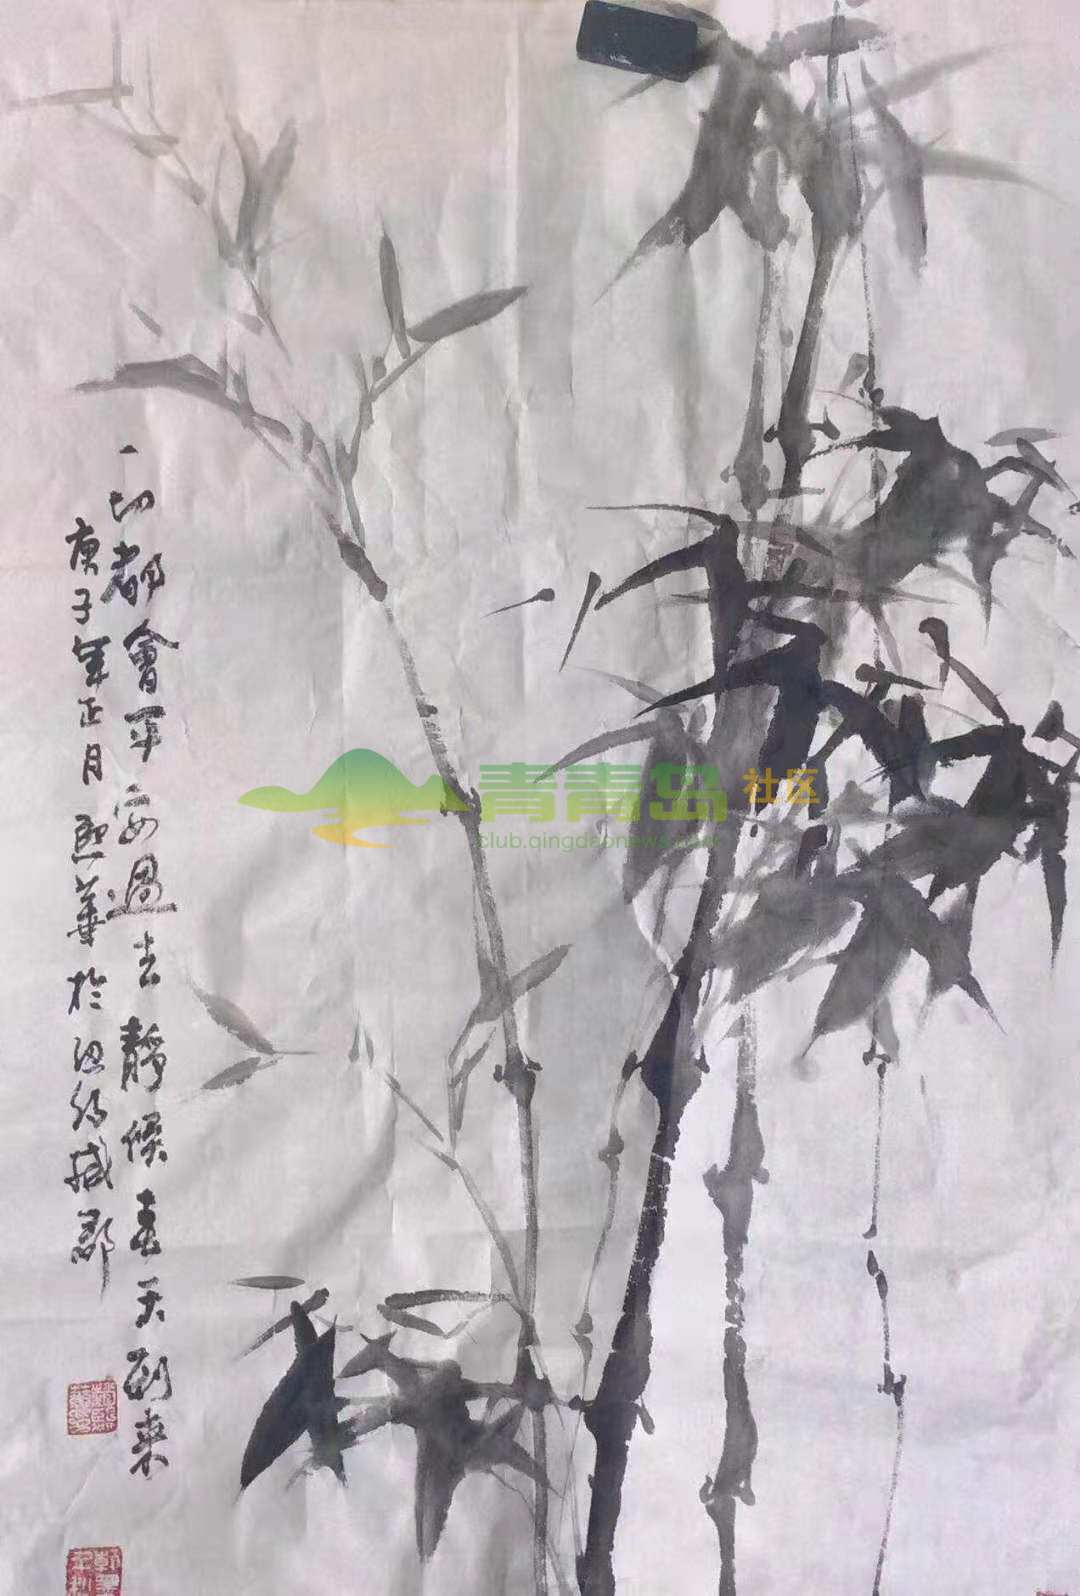 一切都會平安過去靜候春天到來
庚子年正月熙華於
青青岛社区
club.qingdaonews.com